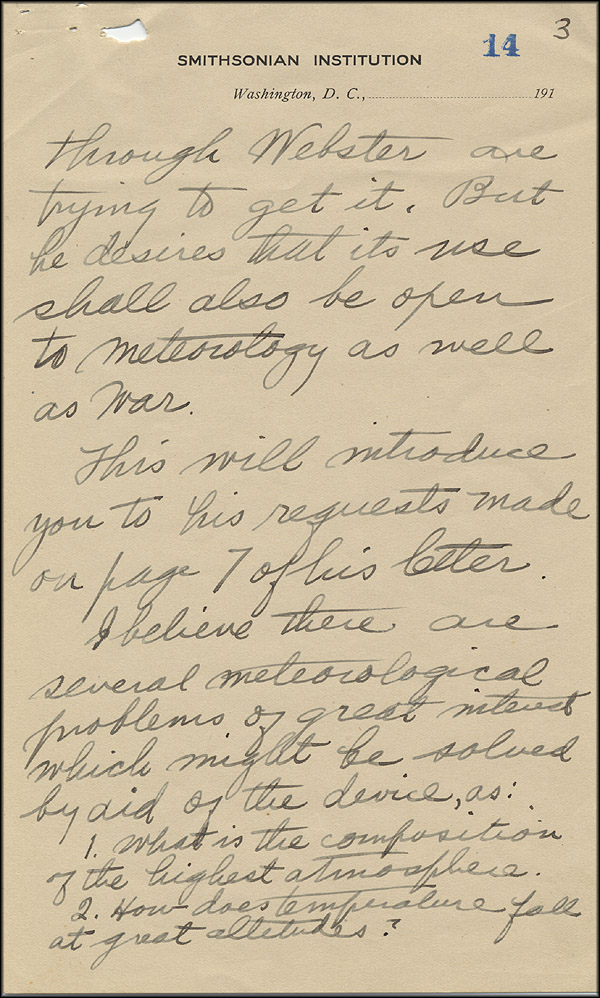 14 3
SMITHSONIAN INSTITUTION
Washington, D. C., 191
through Webster are
trying to get it. But
he desires that its use
shall also be open
to meteorology as well
as War.
This will introduce
you to his requests made
on page 7 of his letter.
I believe there are
several meteorological
problems of great interest
which might be solved
by aid of the device, as:
1. What is the composition
of the highest atmosphere.
2. How does temperature fall
at great altitudes?